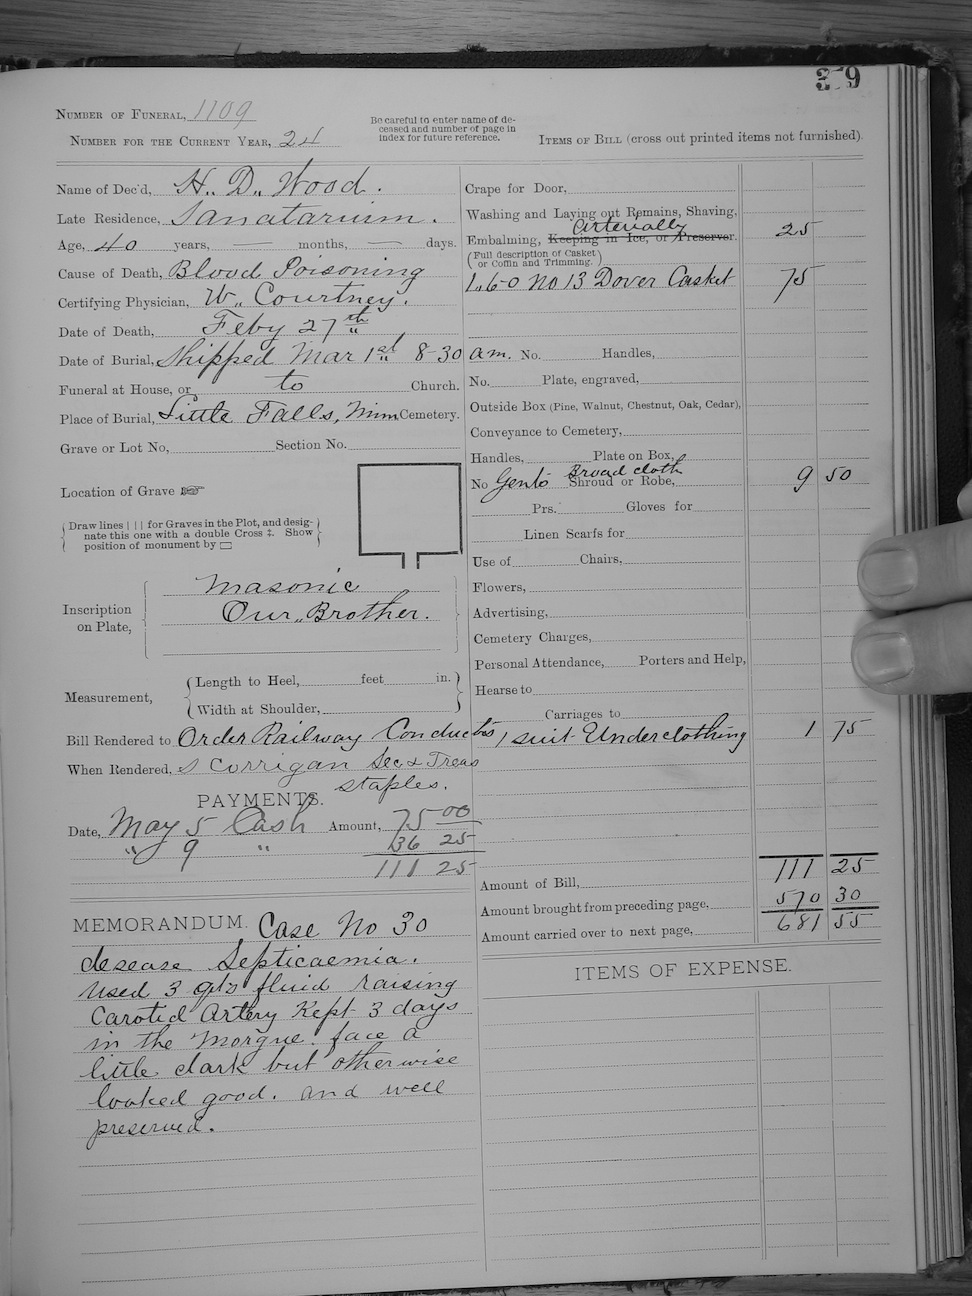 3 9
NUMBER OF FUNERAL, 1109
NUMBER FOR THE CURRENT YEAR, 24
Be careful to enter name of de-
ceased and number of page in
index for future reference.
ITEMS OF BILL (cross out printed items not furnished).
Name of Dec'd, H. D. Wood.
Late Residence, Sanatarium.
Age, 40 years, — months, — days.
Cause of Death, Blood Poisoning
Certifying Physician, W. Courtney.
Date of Death, Feby 27th
Date of Burial, Shipped Mar 1st 8-30 am.
Funeral at House, or to Church.
Place of Burial, Little Falls, Minn Cemetery.
Grave or Lot No, Section No.
Location of Grave ☞
Draw lines | | | for Graves in the Plot, and desig-
nate this one with a double Cross ‡. Show
position of monument by ▭
Inscription
on Plate,
Masonic
Our Brother.
Measurement,
Length to Heel, feet in.
Width at Shoulder,
Bill Rendered to Order Railway Conductors
When Rendered, S Corrigan Sec & Treas
Staples.
PAYMENTS.
Date, May 5 Cash Amount, 75 00
" 9 " 36 25
111 25
MEMORANDUM. Case No 30
desease Septicaemia.
used 3 qts fluid raising
Carotid Artery Kept 3 days
in the Morgue. face a
little dark but otherwise
looked good. and well
preserved.
Crape for Door,
Washing and Laying out Remains, Shaving,
Arterially
Embalming, Keeping in Ice, or Preserver. 25
(Full description of Casket
or Coffin and Trimming.)
1. 6-0 No 13 Dover Casket 75
No. Handles,
No. Plate, engraved,
Outside Box (Pine, Walnut, Chestnut, Oak, Cedar),
Conveyance to Cemetery,
Handles, Plate on Box,
Broad cloth
No Gents Shroud or Robe, 9 50
Prs. Gloves for
Linen Scarfs for
Use of Chairs,
Flowers,
Advertising,
Cemetery Charges,
Personal Attendance, Porters and Help,
Hearse to
Carriages to
1 suit Underclothing 1 75
Amount of Bill, 111 25
Amount brought from preceding page, 570 30
Amount carried over to next page, 681 55
ITEMS OF EXPENSE.